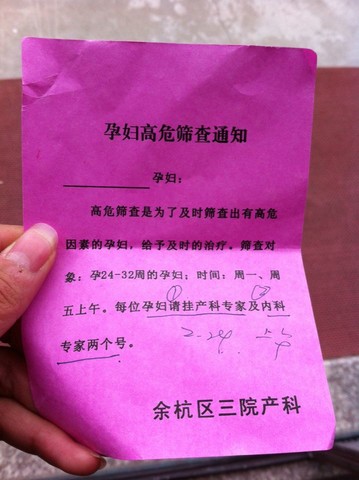 孕妇高危筛查通知
孕妇：
高危筛查是为了及时筛查出有高危
因素的孕妇，给予及时的治疗。筛查对
象：孕24-32周的孕妇；时间：周一、周
① ②
五上午。每位孕妇请挂产科专家及内科
2-24 上午
专家两个号。
余杭区三院产科